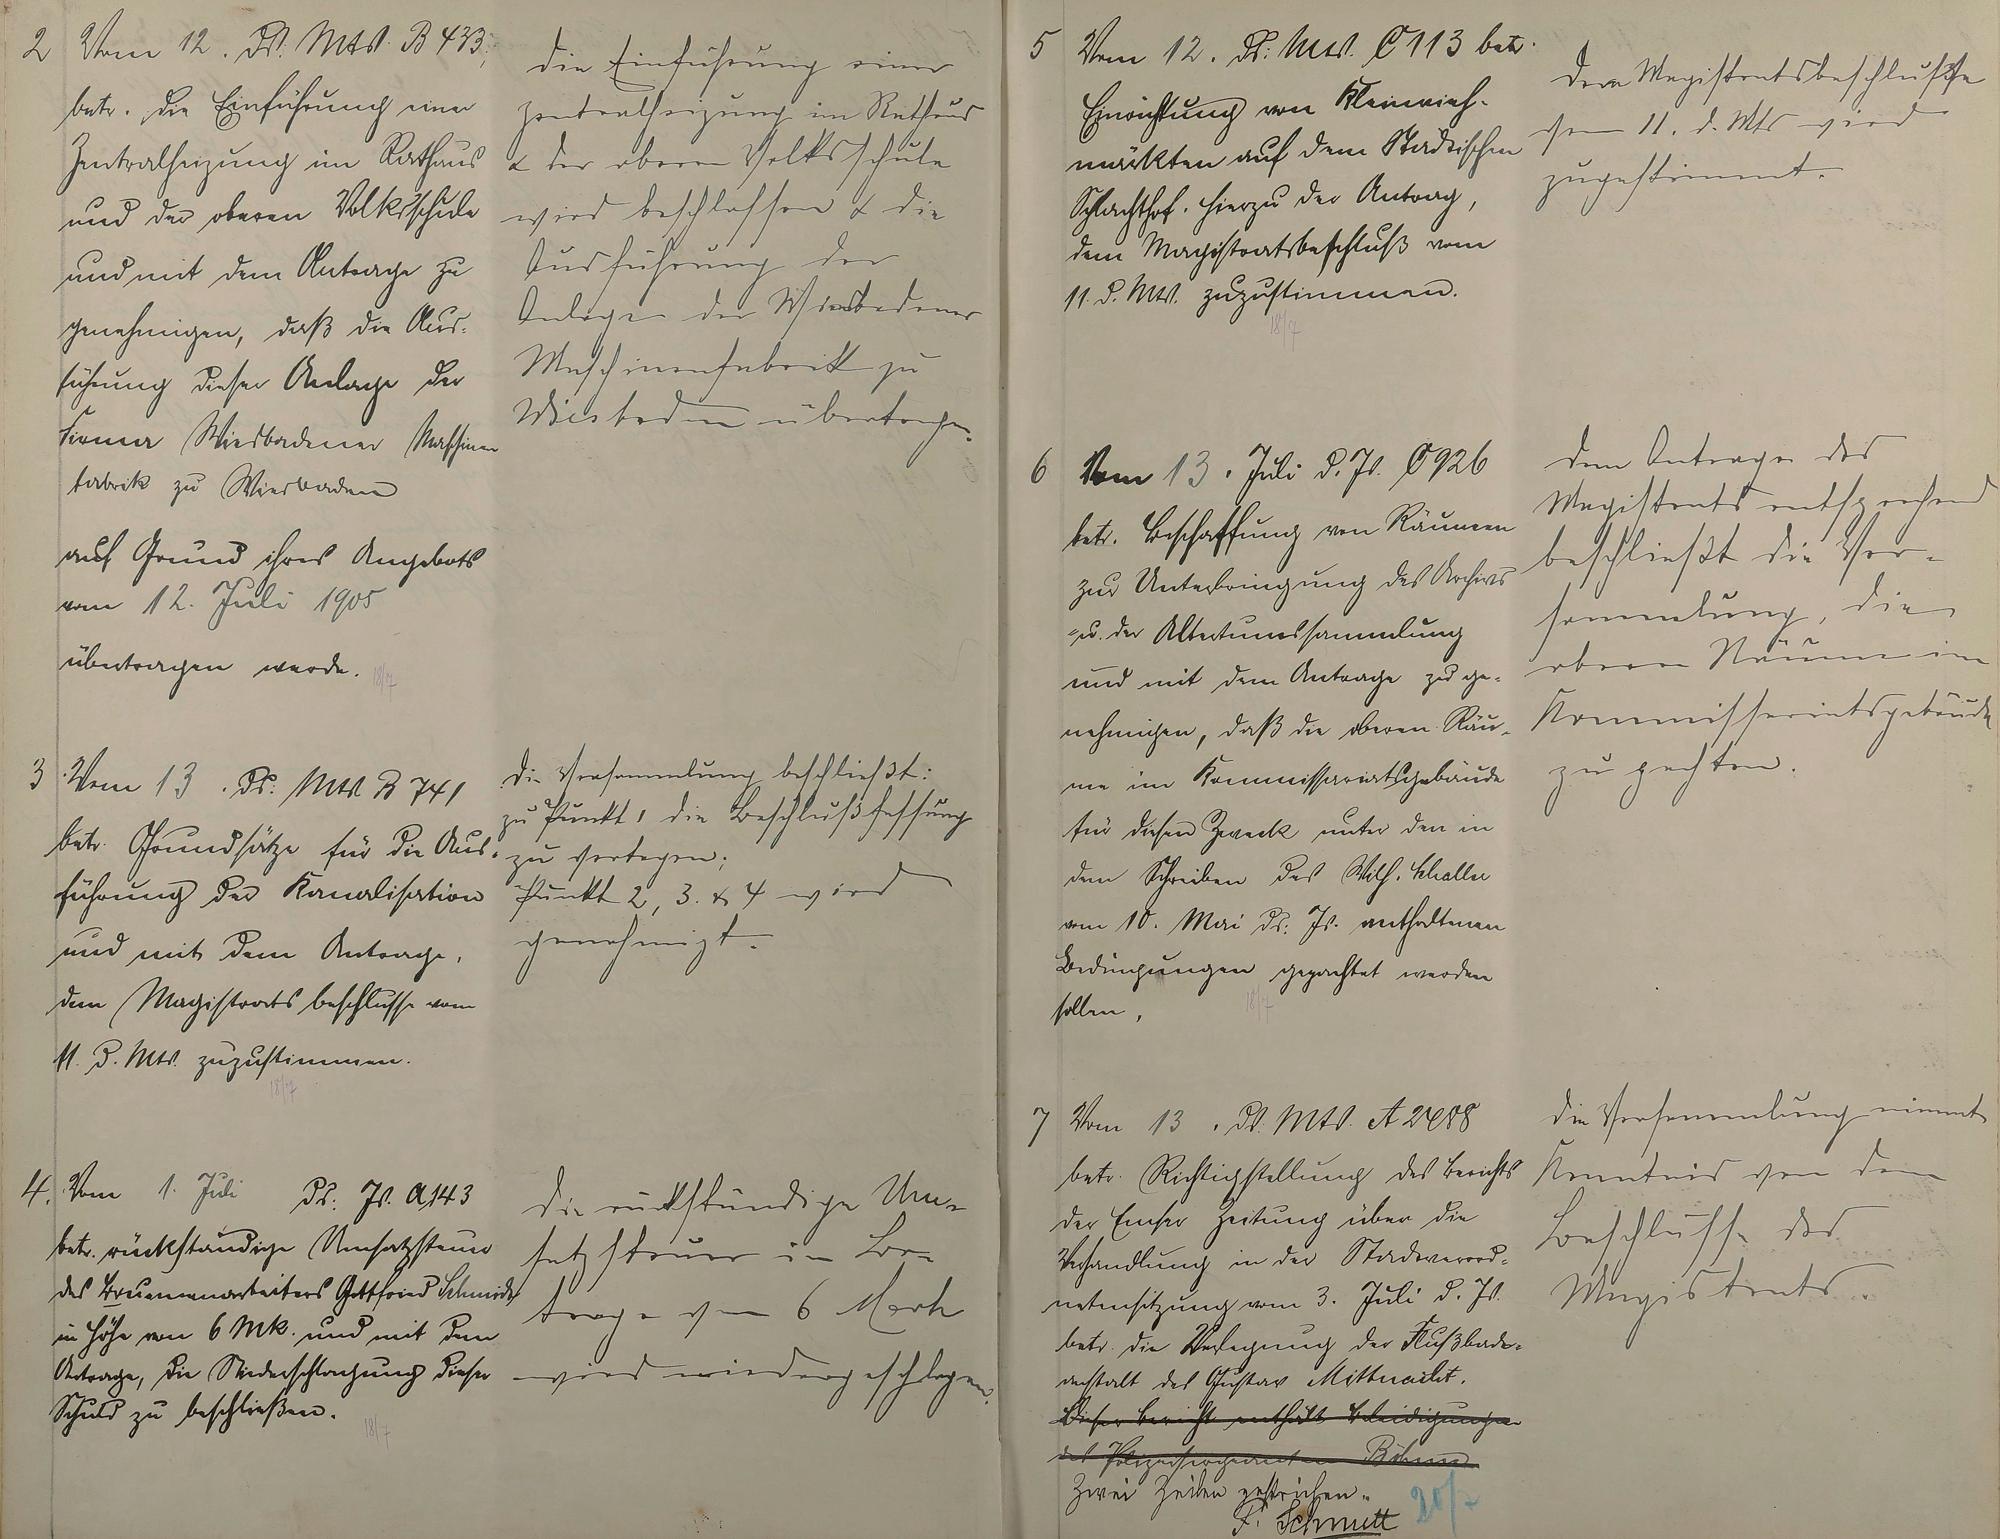 2 Vom 12. ds. Mts. B 433,
betr. die Einführung einer
Zentralheizung im Rathaus
und der oberen Volksschule
und mit dem Antrage zu
genehmigen, daß die Aus-
führung dieser Anlage der
Firma Wiesbadener Maschinen
fabrik zu Wiesbaden
auf Grund ihres Angebots
vom 12. Juli 1905
übertragen werde.
18/7
die Einführung einer
Zentralheizung im Rathaus
& der oberen Volksschule
wird beschlossen & die
Ausführung der
Anlage der Wiesbadener
Maschinenfabrik zu
Wiesbaden übertragen.
3 Vom 13. ds. Mts. B 741
betr. Grundsätze für die Aus-
führung der Kanalisation
und mit dem Antrage,
dem Magistratsbeschlusse vom
11. d. Mts. zuzustimmen.
18/7
die Versammlung beschließt:
zu Punkt 1 die Beschlußfassung
zu vertagen;
Punkt 2, 3. & 4 wird
genehmigt.
4. Vom 1. Juli ds. Js. A 143
betr. rückständige Umsatzsteuer
des Brunnenarbeiters Gottfried Schmidt
in Höhe von 6 Mk. und mit dem
Antrage, die Niederschlagung dieser
Schuld zu beschließen.
18/7
die rückständige Um-
satzsteuer im Be-
trage von 6 Mark
wird niedergeschlagen.
5 Vom 12. ds. Mts. C 113 betr.
Einrichtung von Kleinvieh-
märkten auf dem Städtischen
Schlachthof. Hierzu der Antrag,
dem Magistratsbeschluß vom
11. d. Mts. zuzustimmen.
18/7
Dem Magistratsbeschlusse
vom 11. d. Mts wird
zugestimmt.
6 Vom 13. Juli d. Js. C 926
betr. Beschaffung von Räumen
zur Unterbringung des Archivs
u. der Altertumssammlung
und mit dem Antrage zu ge-
nehmigen, daß die oberen Räu-
me im Kommissariatsgebäude
für diesen Zweck unter den in
dem Schreiben des Wilh.
vom 10. Mai ds. Js. enthaltenen
Bedingungen gepachtet werden
sollen.
18/7
Dem Antrage des
Magistrats entsprechend
beschließt die Ver-
sammlung, die
oberen Räume im
Kommissariatsgebäude
zu pachten.
7 Vom 13. ds. Mts. A 2488
betr. Richtigstellung des Berichts
der Emser Zeitung über die
Verhandlung in der Stadtverord-
netensitzung vom 3. Juli d. Js.
betr. die Verlegung der Flußbade-
anstalt des Gustav Mittnacht.
Dieser Bericht enthält Beleidigungen
des Polizeisergeanten Böhm
Zwei Zeilen gestrichen.
F. Schmitt
20/7
die Versammlung nimmt
Kenntnis von dem
Beschlusse des
Magistrats.